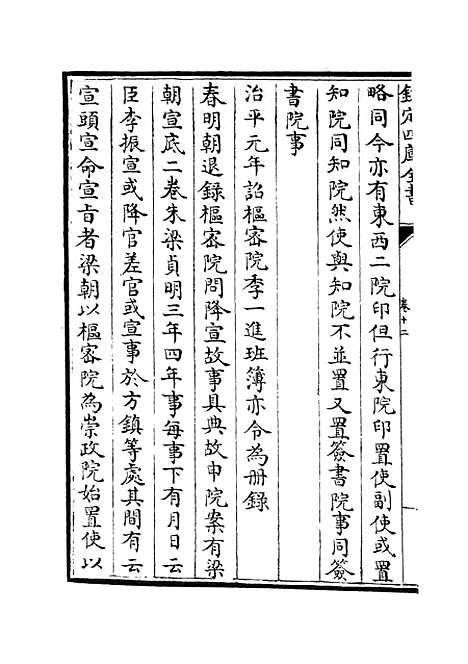 欽定四庫全書
卷十二
略同今亦有東西二院印但行東院印置使副使或置
知院同知院然使與知院不並置又置簽書院事同簽
書院事
治平元年詔樞密院季一進班簿亦令為冊錄
春明朝退錄樞密院問降宣故事具典故申院案有梁
朝宣底二卷朱梁貞明三年四年事每事下有月日云
臣李振宣或降官差官或宣事於方鎮等處其間有云
宣頭宣命宣旨者梁朝以樞密院為崇政院始置使以